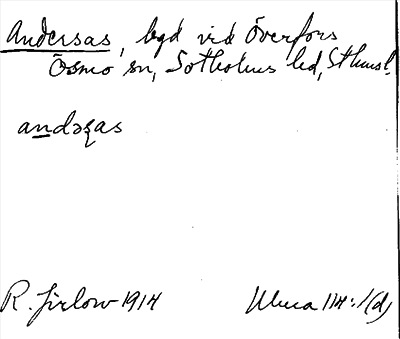 Andersas, lgd vid Överfors
Ösmo sn, Sotholms hd, Sthms l.
andəʒas
R. Jirlow 1914
Muca 114:1(d)